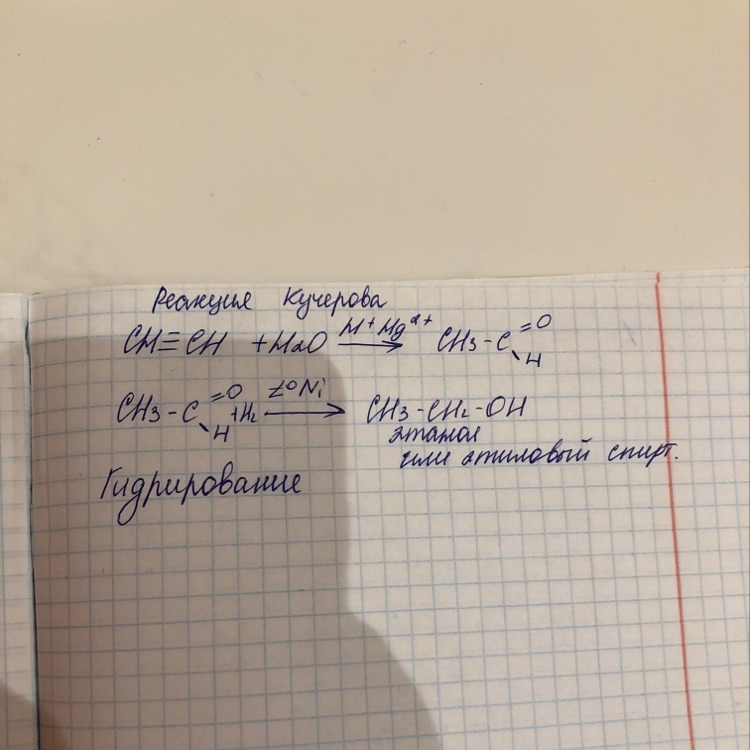 Реакция Кучерова
CH≡CH + H2O H+ Hg2+ → CH3-C=O
H
CH3-C=O + H2 t° Ni → CH3-CH2-OH
H
этанол
или этиловый спирт.
Гидрирование